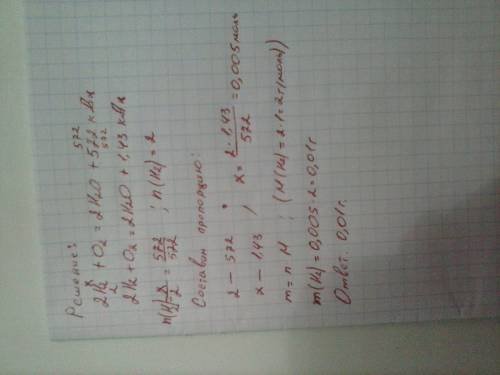 Решение:
572
2H₂ + O₂ = 2H₂O + 572 кДж
2 572
2H₂ + O₂ = 2H₂O + 1,43 кДж
x/2 = 572/572 ; n(H₂) = 2
Составим пропорцию:
2 – 572
x – 1,43 , x = 2·1,43/572 = 0,005 моль
m = n·M ; (M(H₂) = 2·1 = 2 г/моль)
m(H₂) = 0,005·2 = 0,01 г
Ответ: 0,01 г.